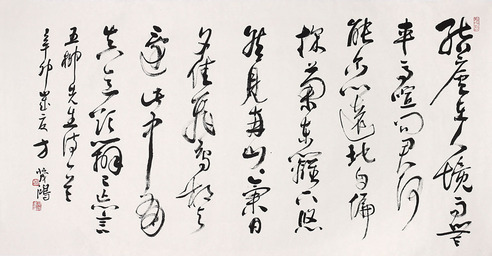 結廬在人境而無
車馬喧問君何
能爾心遠地自偏
採菊東籬下悠
然見南山々氣日
夕佳飛鳥相与
還此中有
真意欲辨已忘言
五柳先生詩一首
辛卯歲夏方